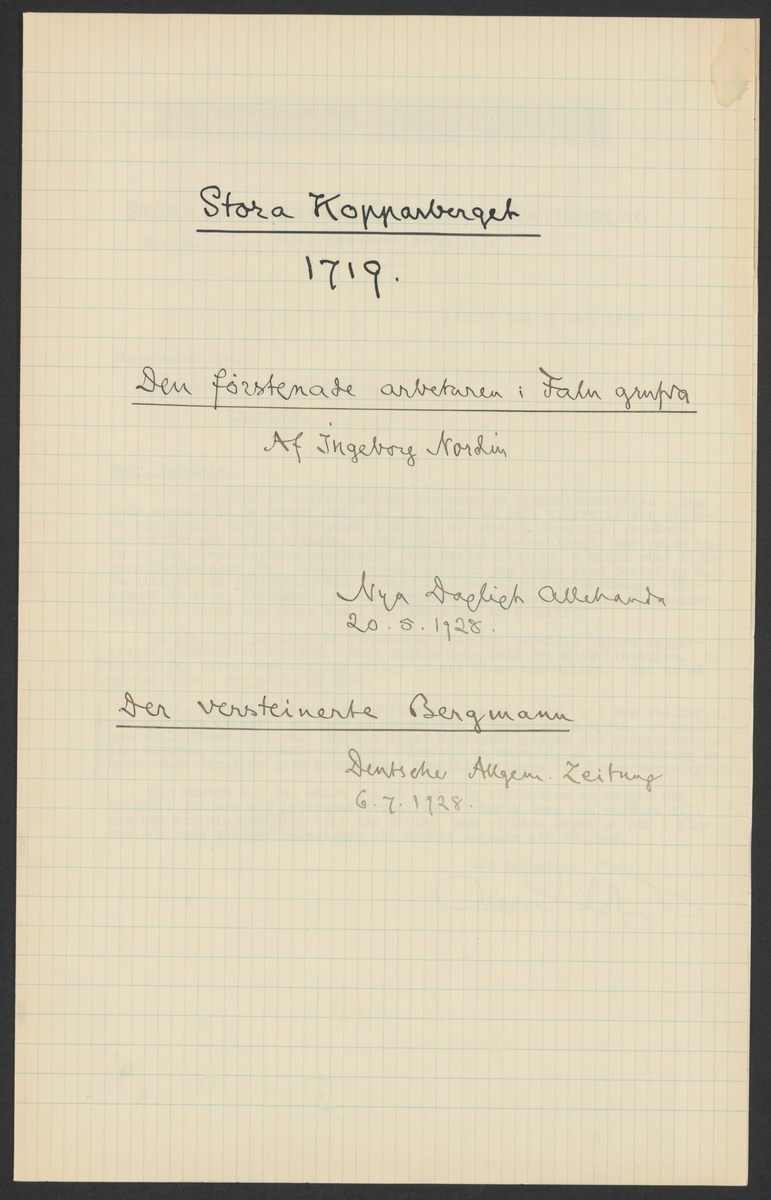 Stora Kopparberget
1719.
Den förstenade arbetaren i Falu grufva
Af Ingeborg Nordin
Nya Dagligt Allehanda
20.5.1928.
Der versteinerte Bergmann
Deutsche Allgem. Zeitung
6.7.1928.